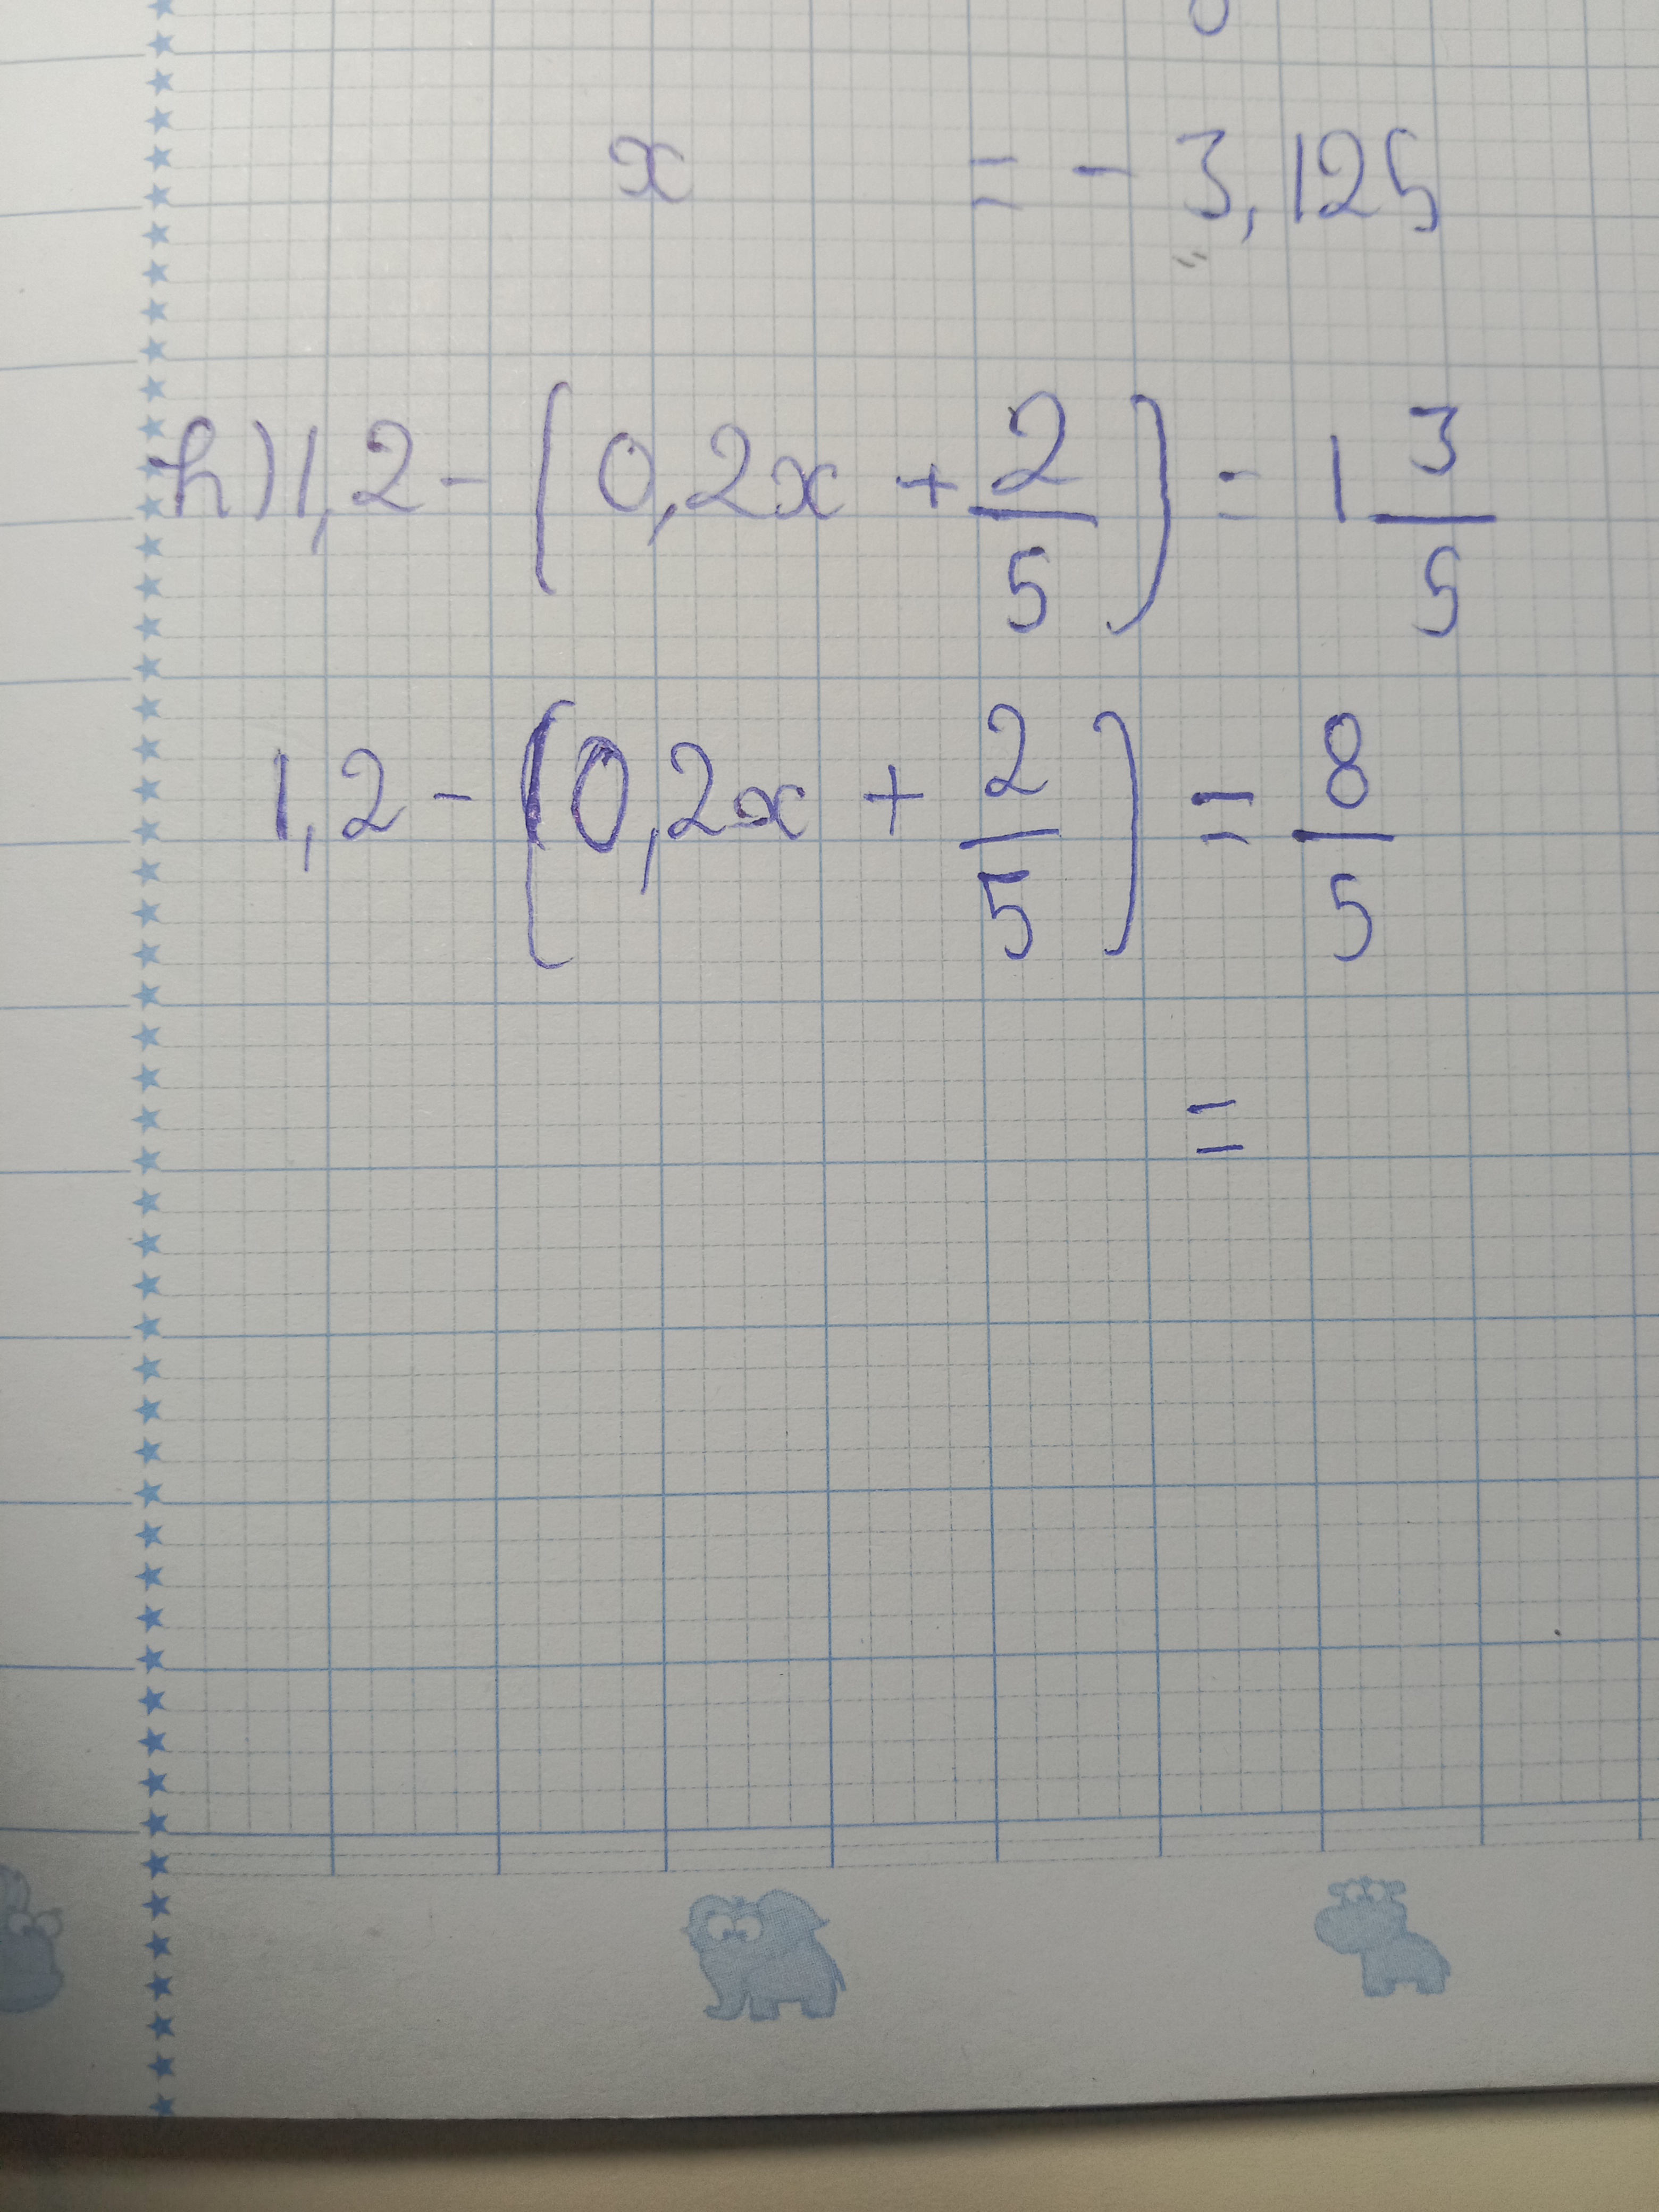 x = - 3,125
h) 1,2 - ( 0,2x + 2/5 ) = 1 3/5
1,2 - ( 0,2x + 2/5 ) = 8/5
=